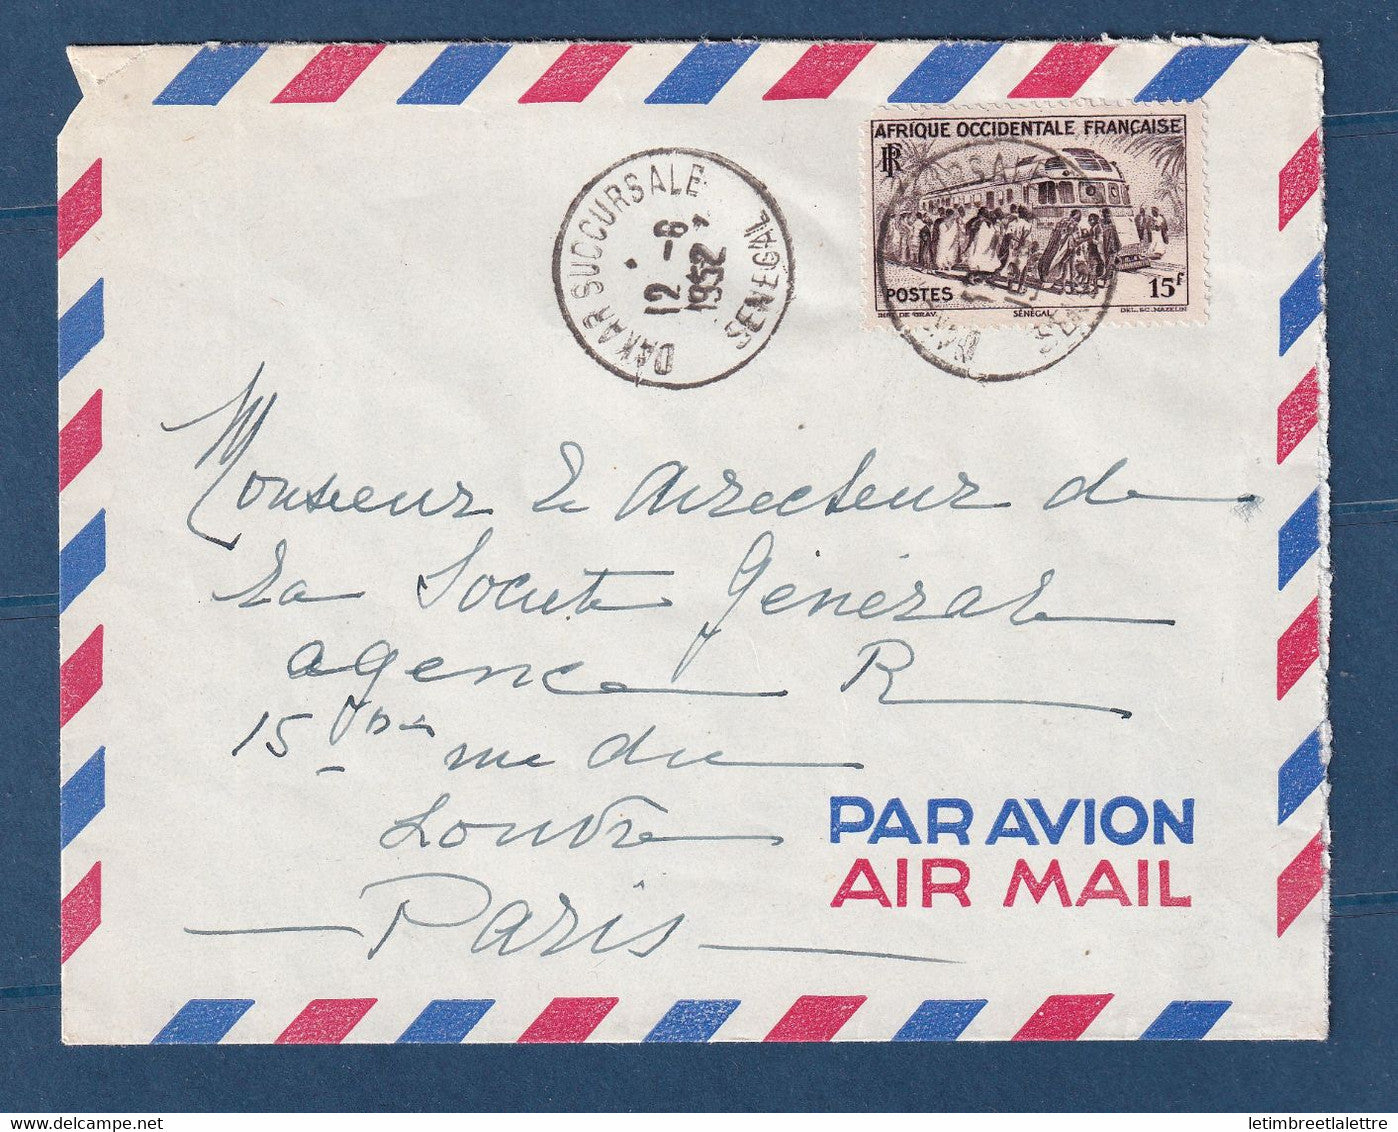 AFRIQUE OCCIDENTALE FRANÇAISE
RF
POSTES
15F
SÉNÉGAL
DEL. SC. MAZELIN
DAKAR SUCCURSALE
12 -6
1952
SENEGAL
Monsieur le Directeur de
la Société Générale
agence R
15 bis rue du
Louvre
Paris
PAR AVION
AIR MAIL
delcampe.net
letimbreetlalettre